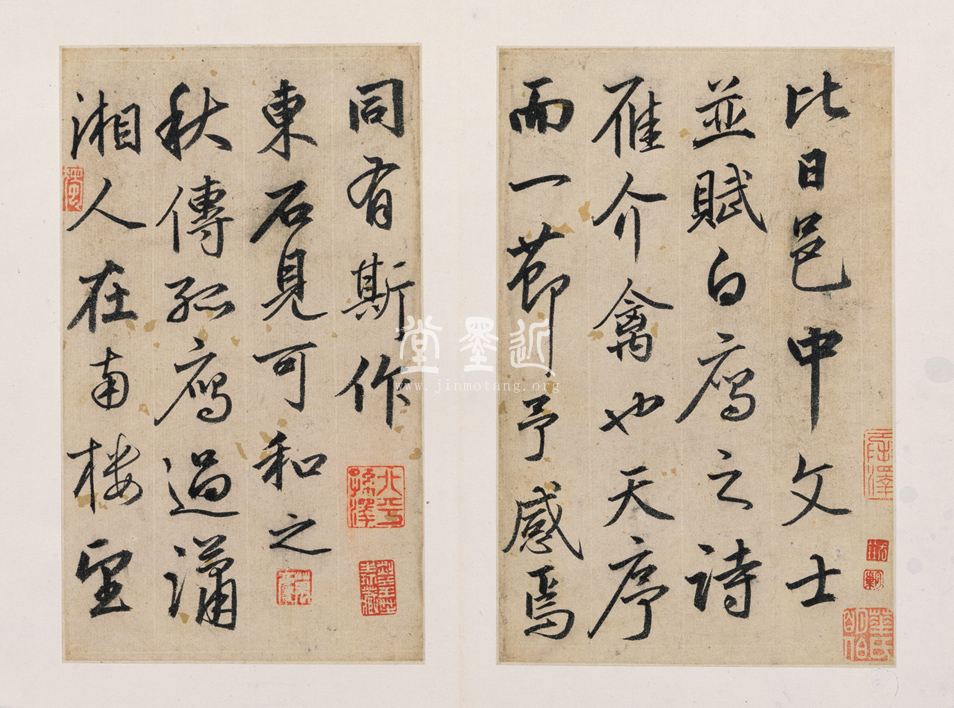 比日邑中文士
並賦白鴈之詩
雁介禽也天序
而一節予感焉
同有斯作
東石見可和之
秋傳孤鴈過瀟
湘人在南樓望
近墨堂
www.jinmotang.org